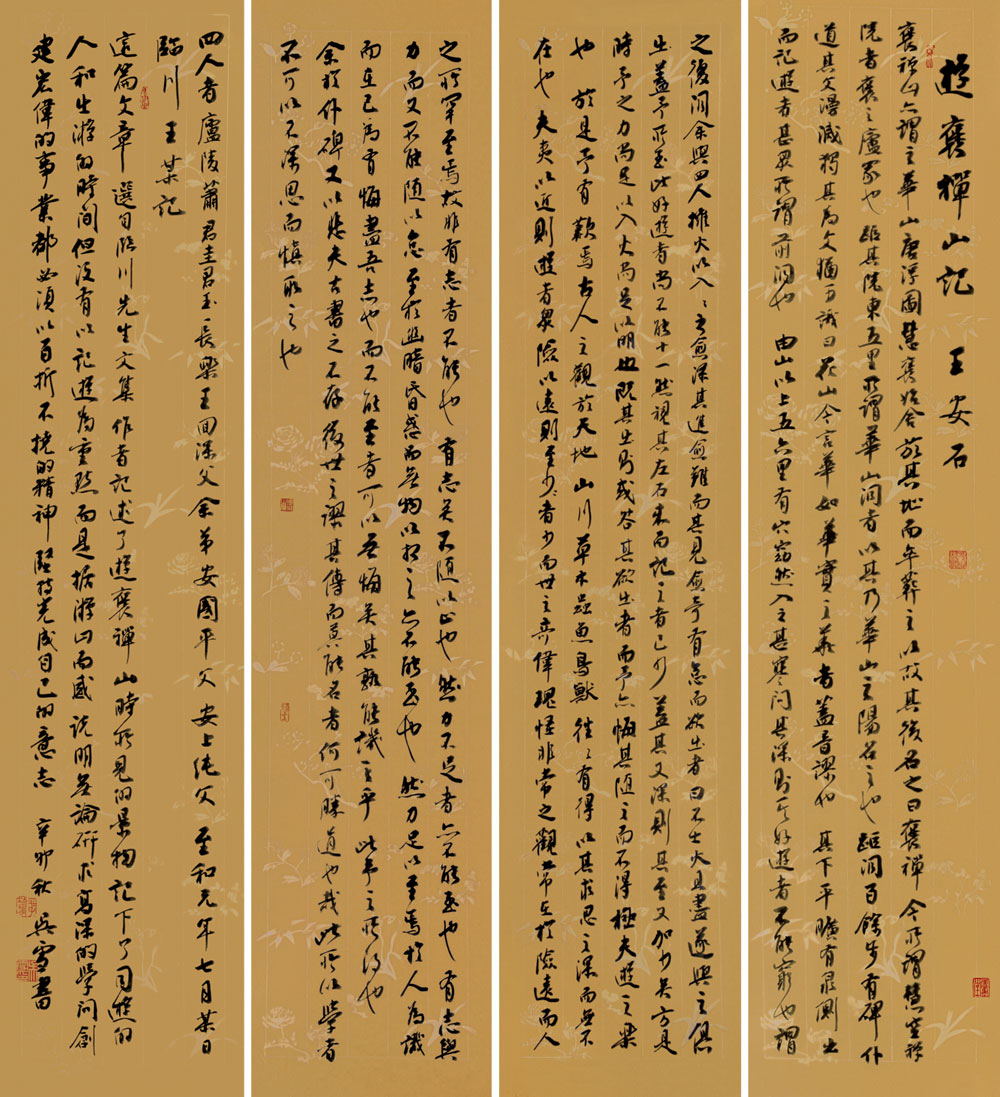 遊褒禪山記 王安石
褒禪山亦謂之華山唐浮圖慧褒始舍於其址而卒葬之以故其後名之曰褒禪 今所謂慧空禪
院者褒之廬冢也 距其院東五里所謂華山洞者以其乃華山之陽名之也 距洞百餘步有碑仆
道其文漫滅獨其為文猶可識曰花山今言華如華實之華者蓋音謬也 其下平曠有泉側出
而記遊者甚眾所謂前洞也 由山以上五六里有穴窈然入之甚寒問其深則其好遊者不能窮也謂
之後洞余與四人擁火以入々之愈深其進愈難而其見愈奇有怠而欲出者曰不出火且盡遂與之俱
出蓋予所至比好遊者尚不能十一然視其左右來而記之者已少 蓋其又深則其至又加少矣方是
時予之力尚足以入火尚足以明也既其出則或咎其欲出者而予亦悔其隨之而不得極夫遊之樂
也 於是予有歎焉古人之觀於天地 山川草木蟲魚鳥獸 往々有得以其求思之深而無不
在也夫夷以近則遊者眾險以遠則至少者少而世之奇偉瑰怪非常之觀常在於險遠而人
之所罕至焉故非有志者不能至也 有志矣不隨以止也 然力不足者亦不能至也 有志與
力而又不能隨以怠至於幽暗昏惑而無物以相之亦不能至也 然力足以至焉於人為譏
而在己為有悔盡吾志也而不能至者可以無悔矣其孰能譏之乎 此予之所得也
余於仆碑又以悲夫古書之不存 後世之謬其傳而莫能名者何可勝道也哉此所以學者
不可以不深思而慎取之也
四人者廬陵蕭君圭君玉長樂王回深父余弟安國平父 安上純父 至和元年七月某日
臨川 王某記
這篇文章選自臨川先生文集 作者記述了遊褒禪山時所見的景物記下了同遊的
人和出游的時間但沒有以記遊為重點而是據游山而感說明無論研求高深的學問創
建宏偉的事業都必須以百折不撓的精神 堅持完成自己的意志 辛卯秋 吳雪書